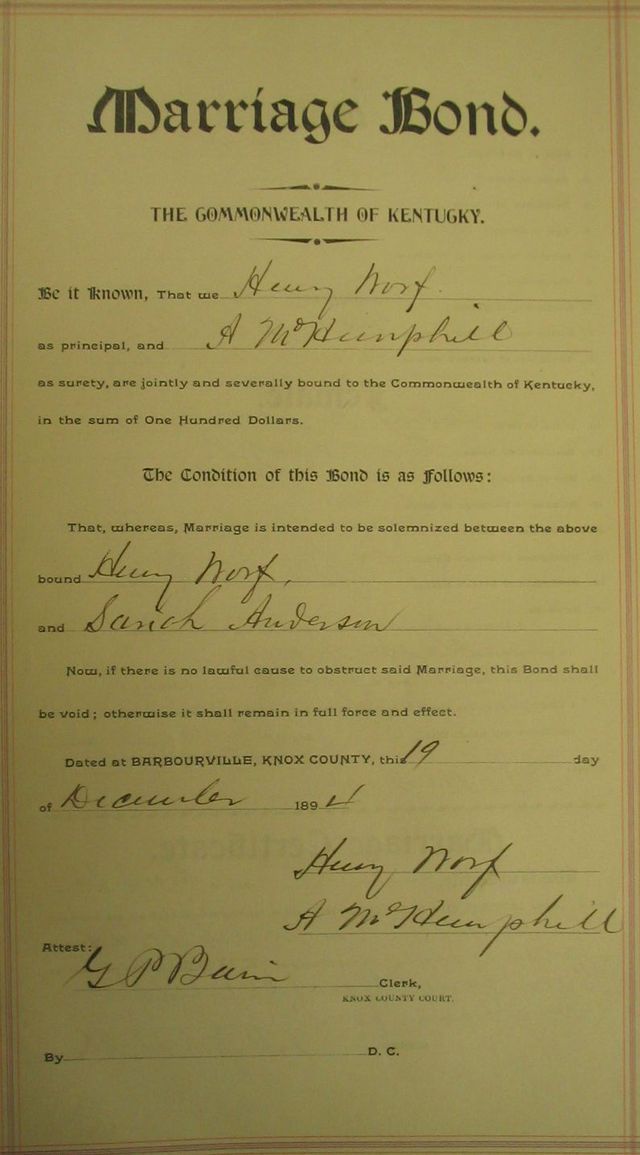 Marriage Bond.
THE COMMONWEALTH OF KENTUCKY.
Be it Known, That we Henry Worf.
as principal, and A McHemphill
as surety, are jointly and severally bound to the Commonwealth of Kentucky,
in the sum of One Hundred Dollars.
The Condition of this Bond is as Follows:
That, whereas, Marriage is intended to be solemnized between the above
bound Henry Worf,
and Sarah Anderson
Now, if there is no lawful cause to obstruct said Marriage, this Bond shall
be void; otherwise it shall remain in full force and effect.
Dated at BARBOURVILLE, KNOX COUNTY, this 19 day
of December 1894
Henry Worf
A McHemphill
Attest:
G P Bain Clerk,
KNOX COUNTY COURT.
By D. C.